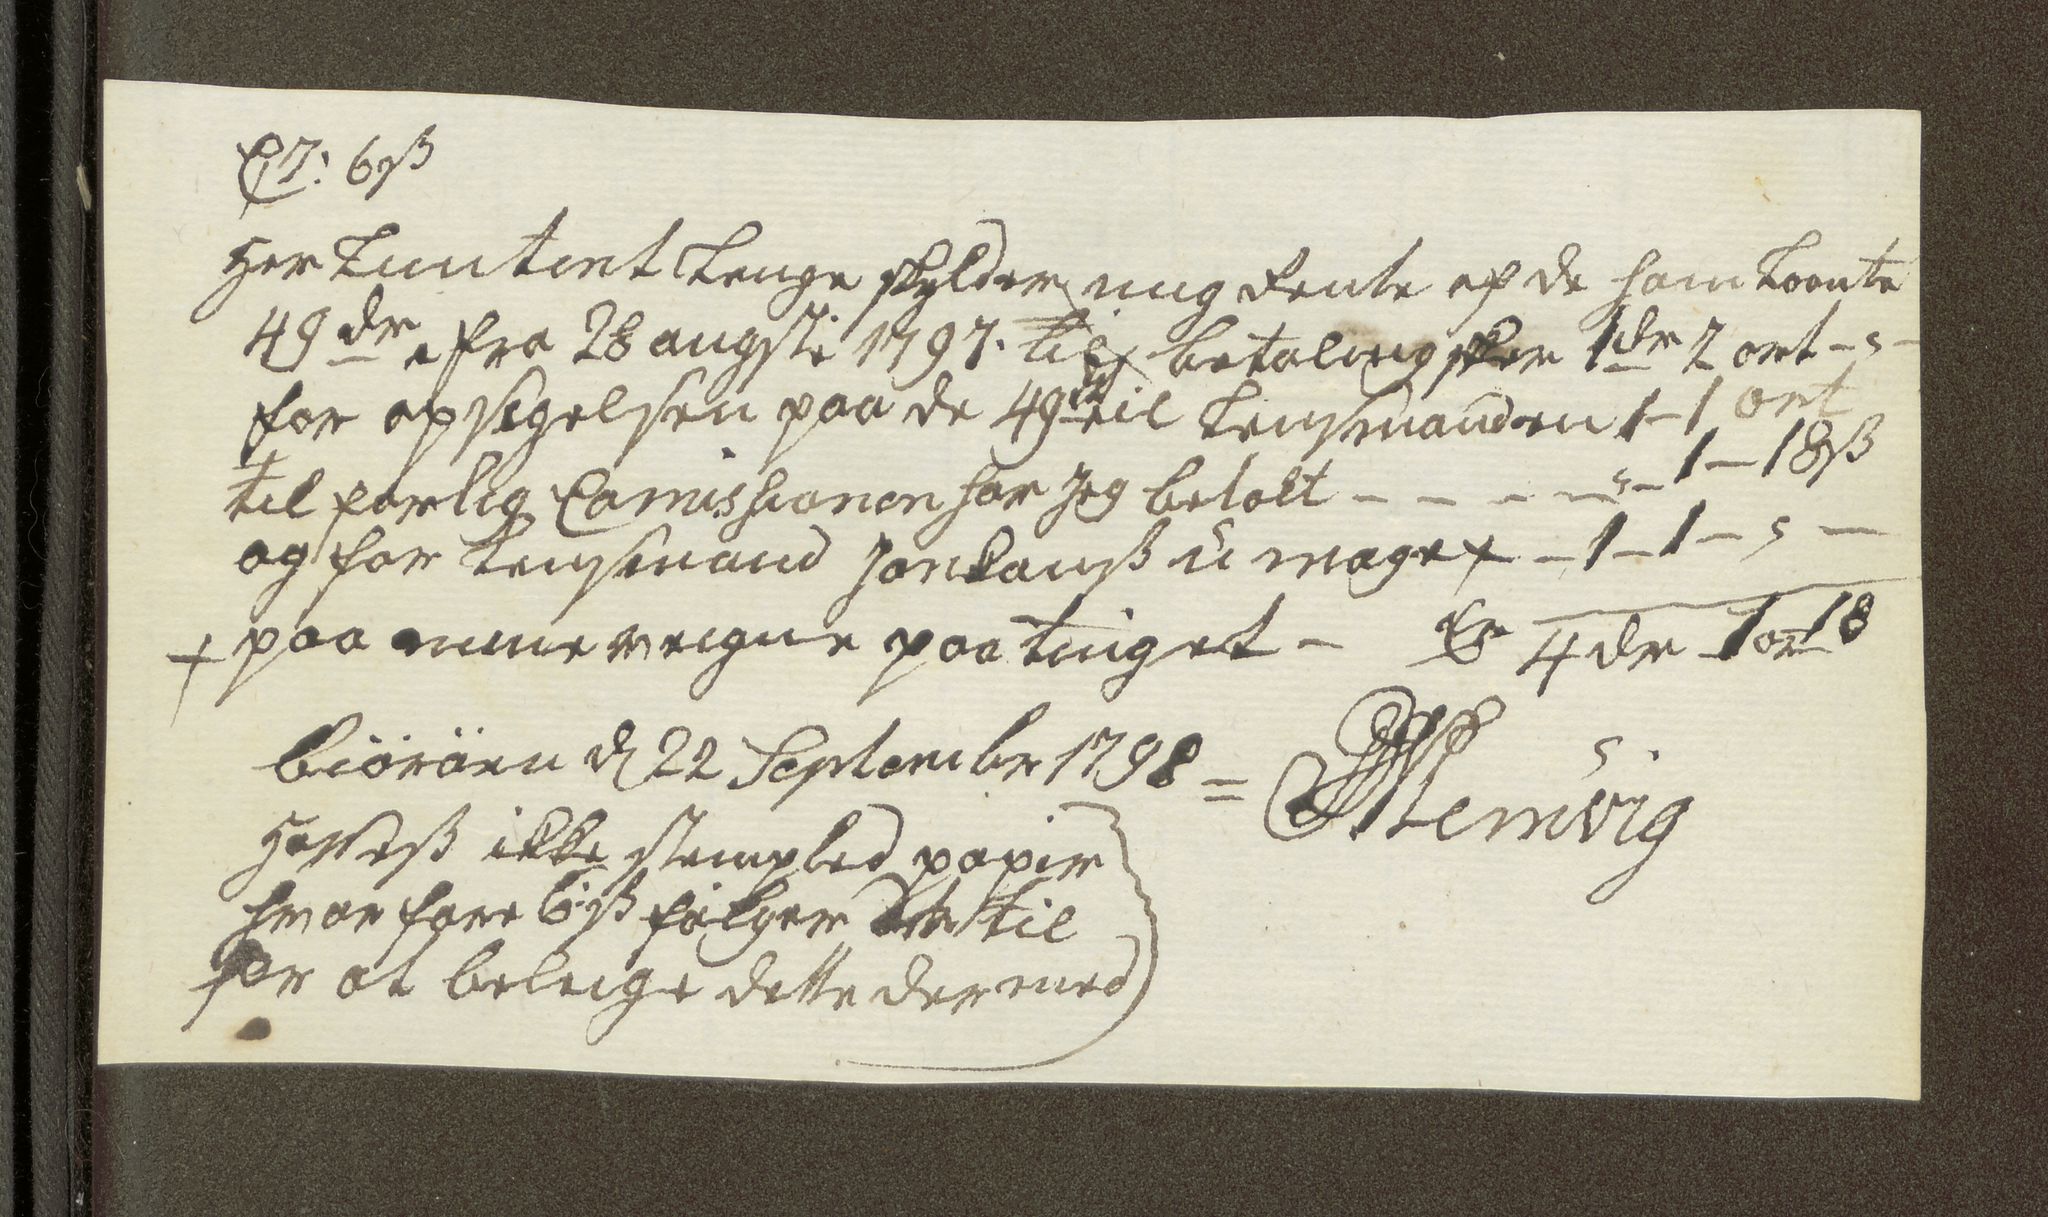 C7: 6 ß
Her Luutent Lenge skylder mig Rente af de ham Loonte
49 dr fra 28 augsti 1797. til betaling sker 1 dr 2 ort - s -
for opsigelsen paa de 49 dr til Lensmanden 1 - 1 ort
til forlig Comishionen har jeg betalt - - - - " - 1 - 18 ß
og for Lensmand Jonsanß u mage + - 1 - 1 - s -
+ paa mine veigne paa tinget - Er 4 dr 1 or 18
biöröen d 22 September 1798 =
Hemvig
Haveß ikke stempled papir
hvor fore 6 ß følger til
for at belegge dette dermed